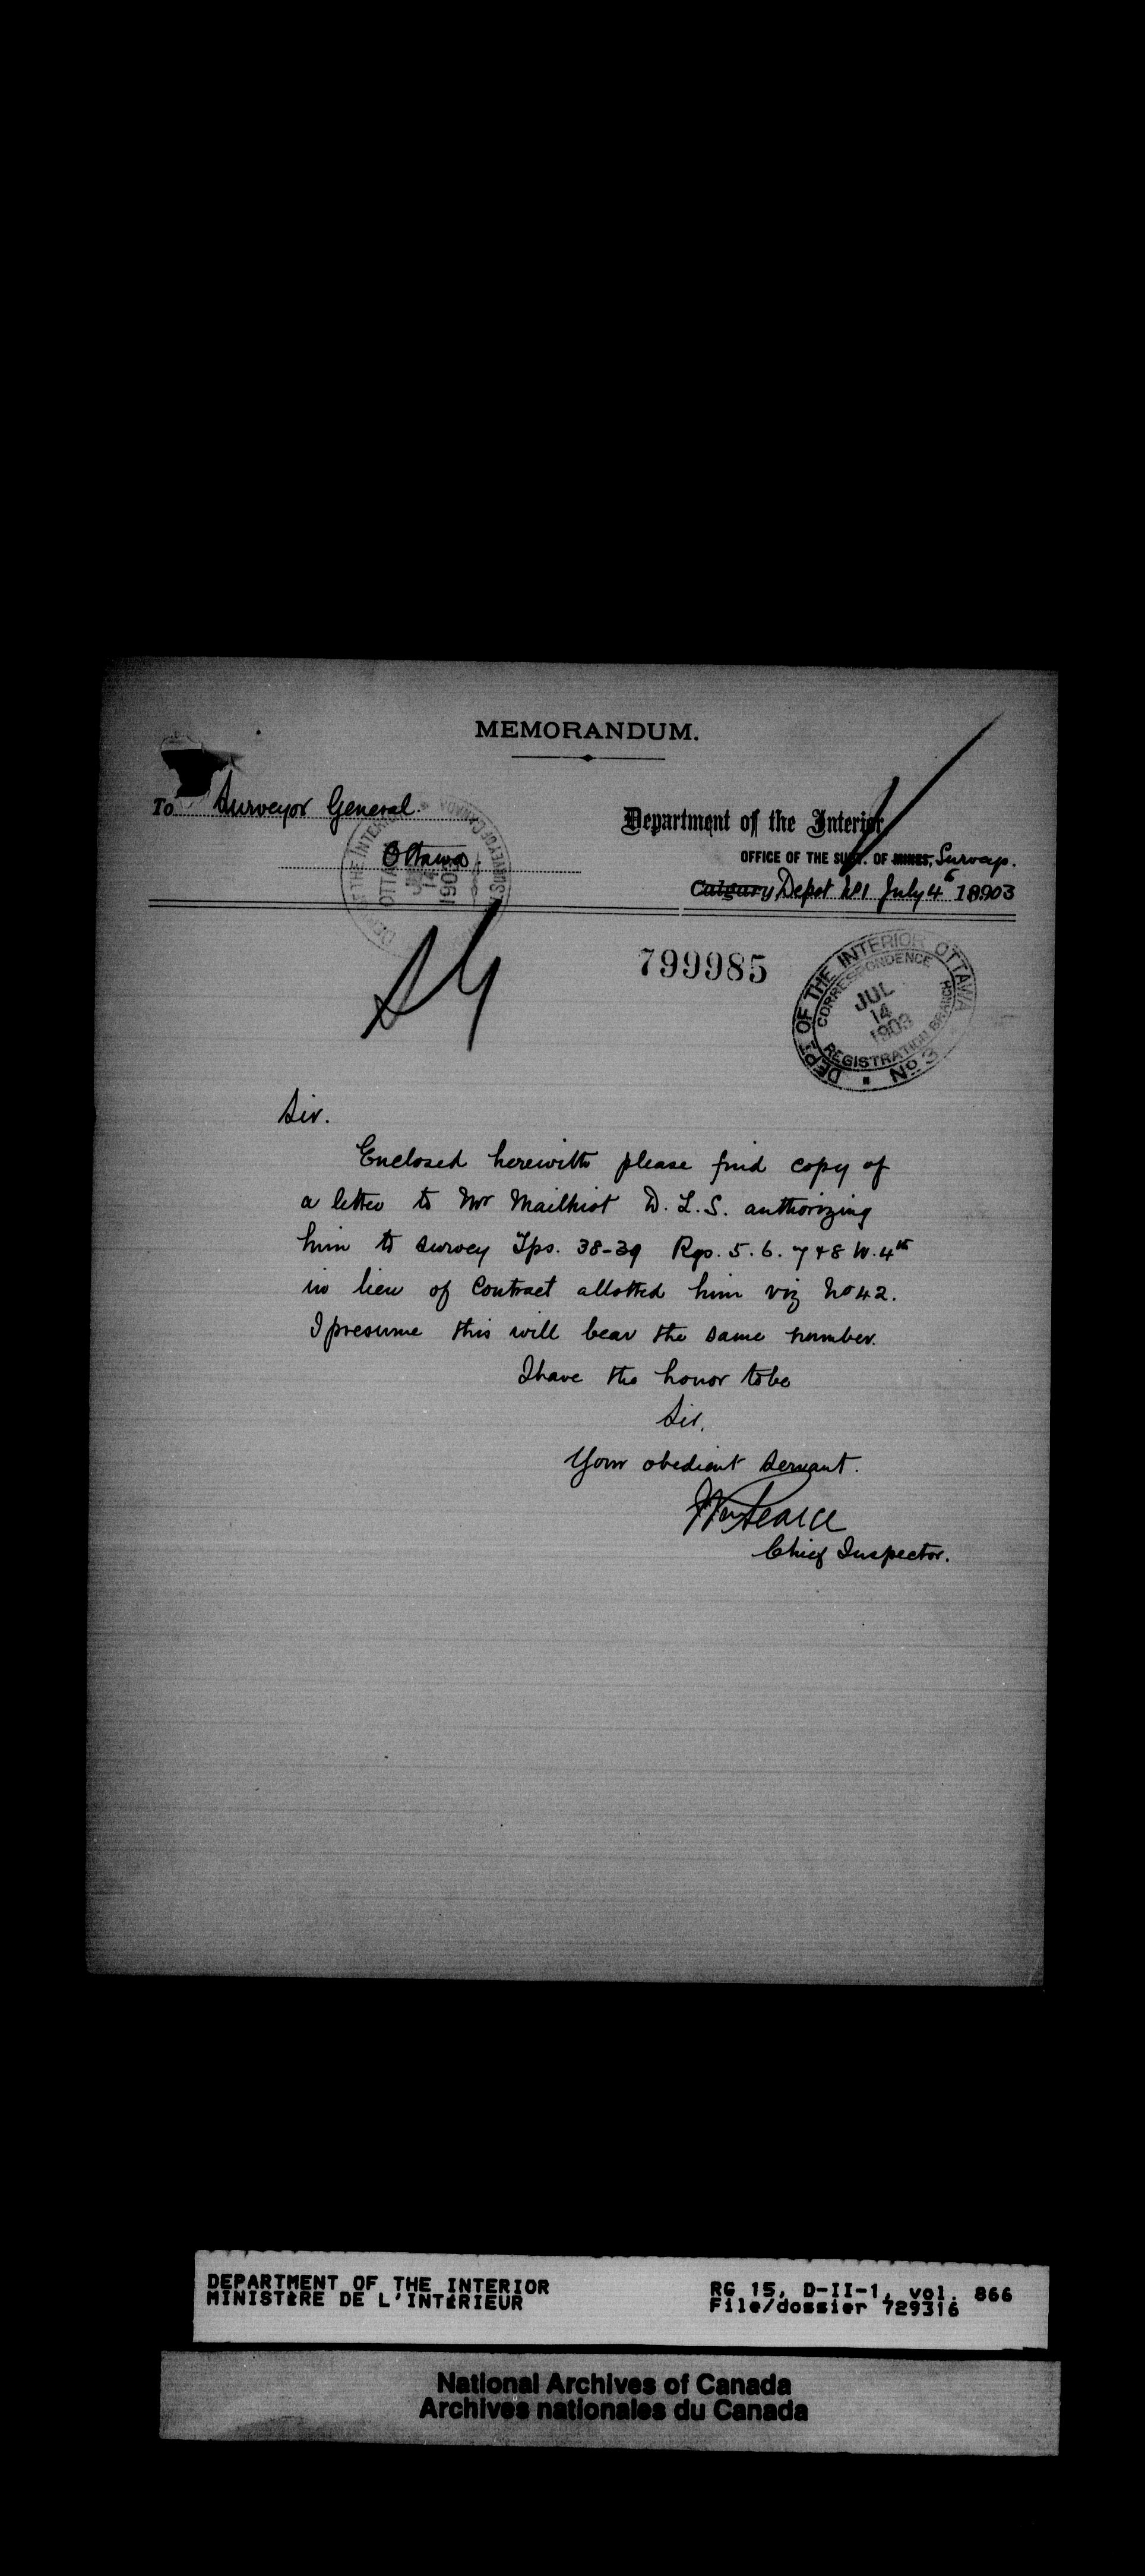 MEMORANDUM.
To Surveyor General
Ottawa
Department of the Interior,
OFFICE OF THE SUPT. OF MINES, Surveys.
Calgary, Depot No 1 July 4th 1903
DEPT OF THE INTERIOR
OTTAWA
JUL
14
1903
SURVEYOR
CANADA
SG
799985
DEPT OF THE INTERIOR OTTAWA
CORRESPONDENCE
JUL
14
1903
REGISTRATION BRANCH
No 3
Sir.
Enclosed herewith please find copy of
a letter to Mr Mailhiot D.L.S. authorizing
him to survey Tps. 38-39 Rgs. 5. 6. 7 & 8 W. 4th
in lieu of Contract allotted him viz No 42.
I presume this will bear the same number.
I have the honor to be
Sir,
Your obedient servant.
Wm Pearce
Chief Inspector.
DEPARTMENT OF THE INTERIOR
MINISTÈRE DE L'INTÉRIEUR
RG 15, D-II-1, vol. 866
File/dossier 729316
National Archives of Canada
Archives nationales du Canada